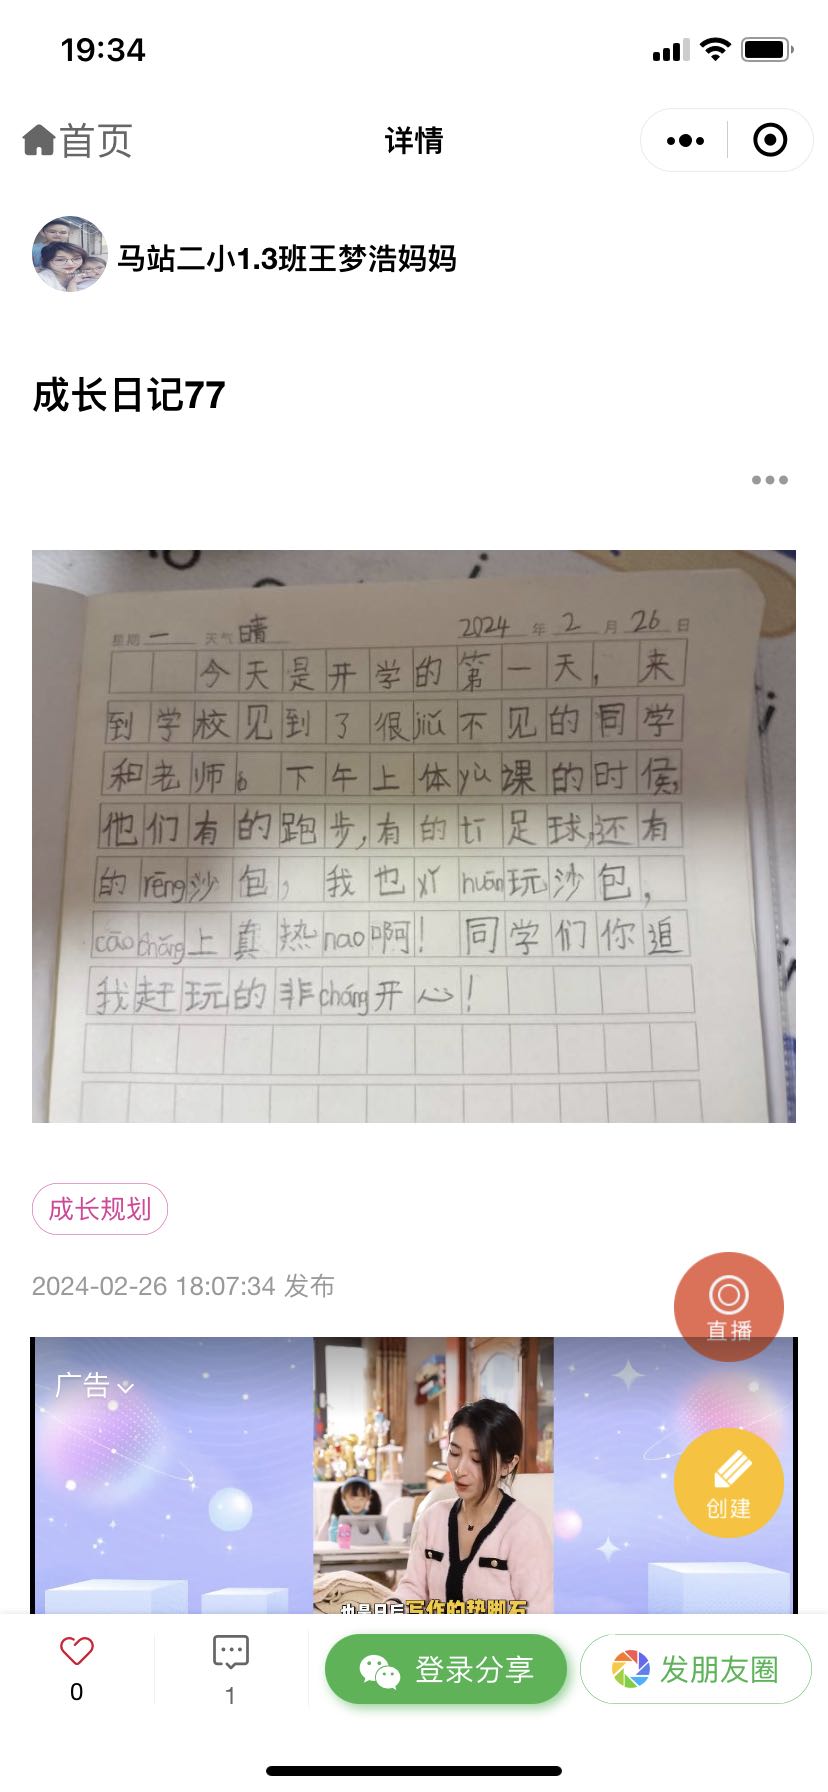 19:34
首页
详情
马站二小1.3班王梦浩妈妈
成长日记77
星期 一 天气 晴 2024 年 2 月 26 日
今天是开学的第一天，来
到学校见到了很jiǔ不见的同学
和老师。下午上体yù课的时侯，
他们有的跑步，有的tī足球，还有
的rēng沙包，我也xǐ huān玩沙包，
cāo chǎng上真热nao啊！同学们你追
我赶玩的非cháng开心！
成长规划
2024-02-26 18:07:34 发布
直播
广告
创建
也是日后写作的垫脚石
0
1
登录分享
发朋友圈